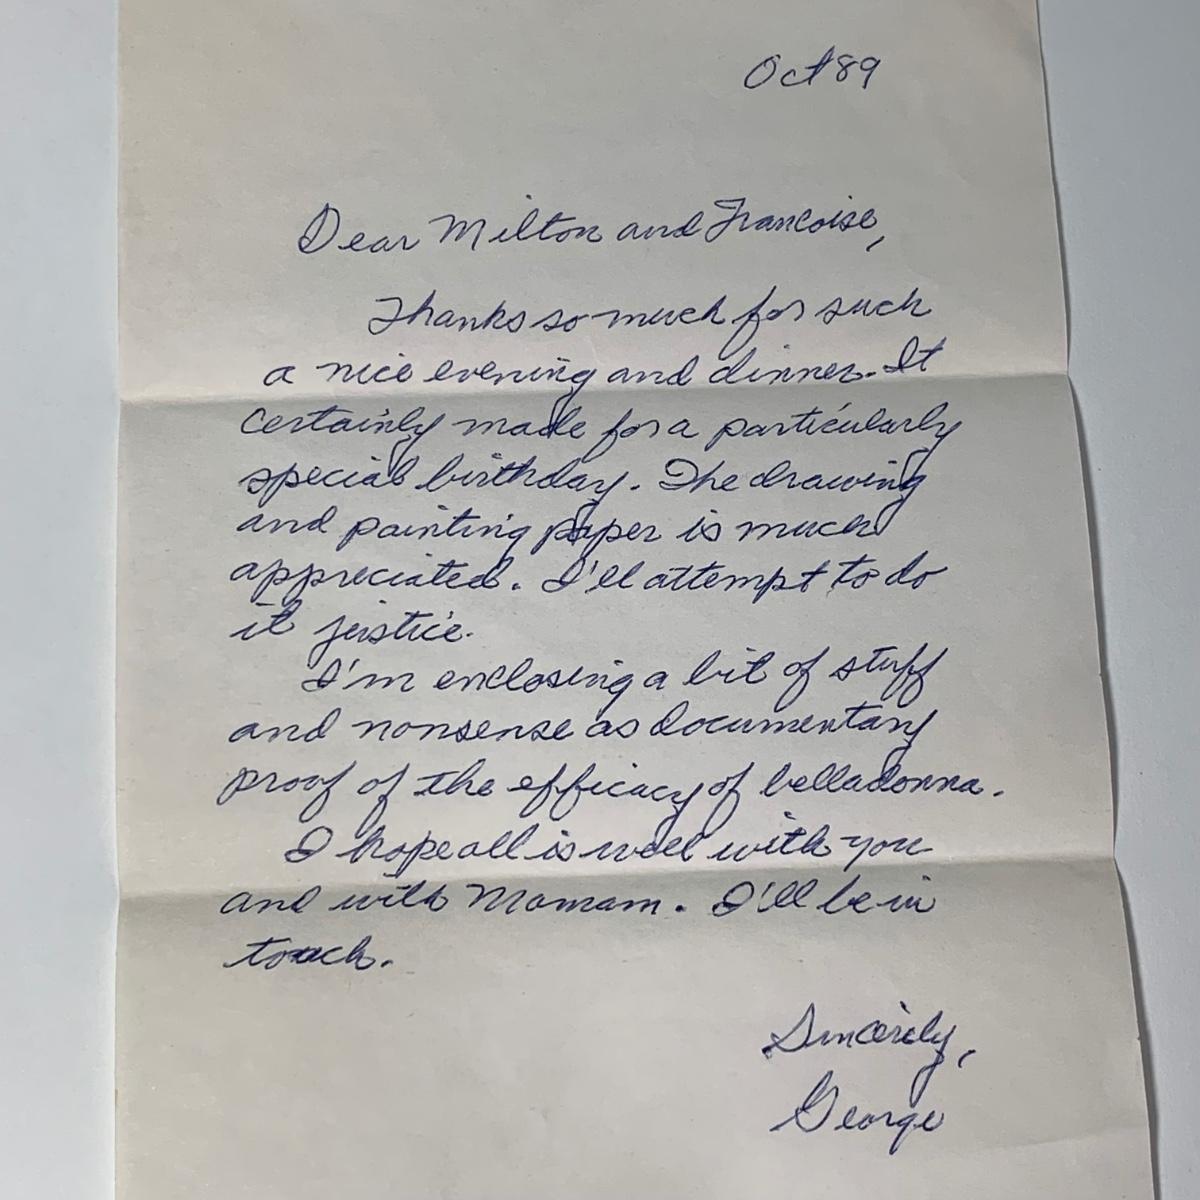 Oct 89
Dear Milton and Francoise,
Thanks so much for such
a nice evening and dinner. It
certainly made for a particularly
special birthday. The drawing
and painting paper is much
appreciated. I'll attempt to do
it justice.
I'm enclosing a bit of stuff
and nonsense as documentary
proof of the efficacy of belladonna.
I hope all is well with you
and with Momam. I'll be in
touch.
Sincerely,
George